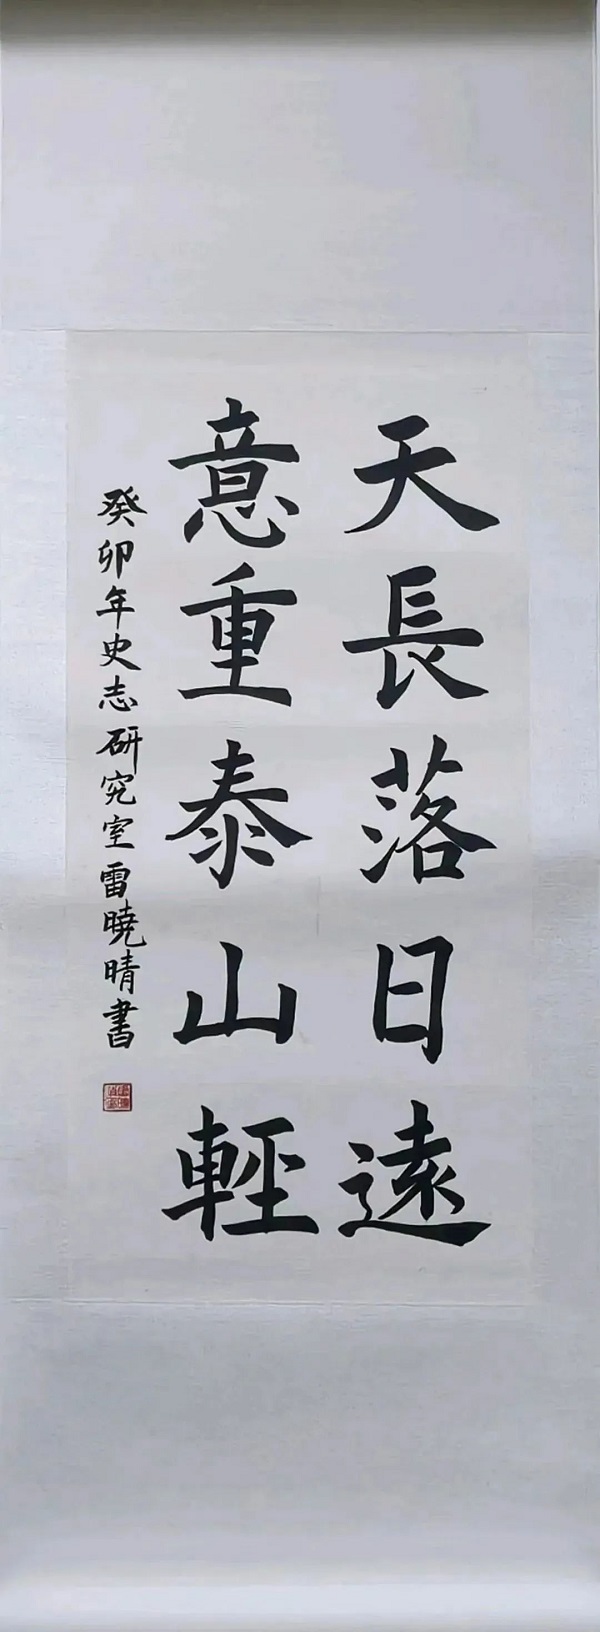 天長落日遠
意重泰山輕
癸卯年史志研究室雷曉晴書